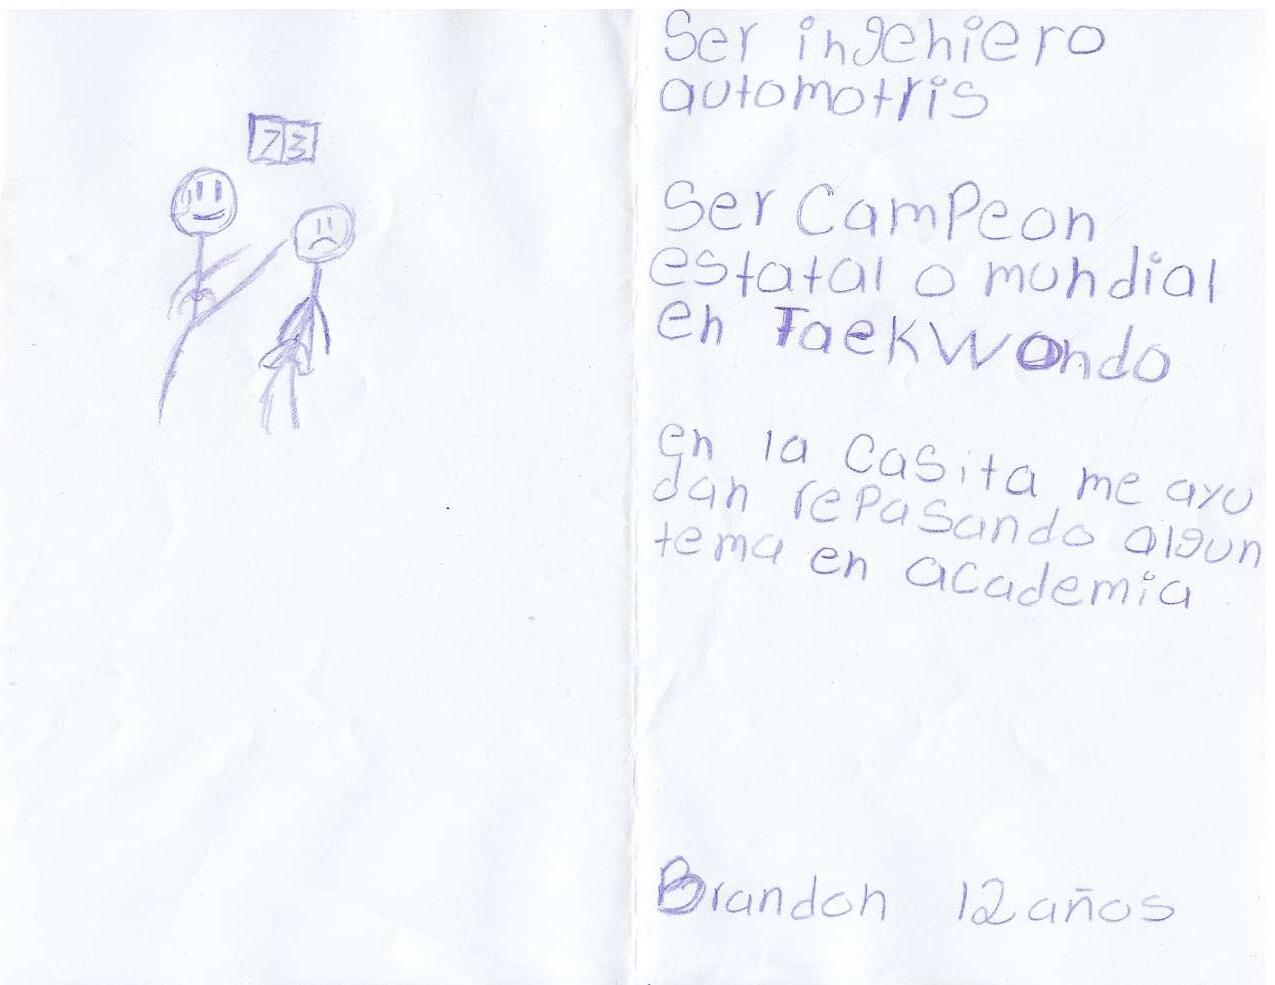 73
Ser ingeniero
automotris
Ser Campeon
estatal o mundial
en Taekwondo
en la casita me ayu
dan repasando algun
tema en academia
Brandon 12 años